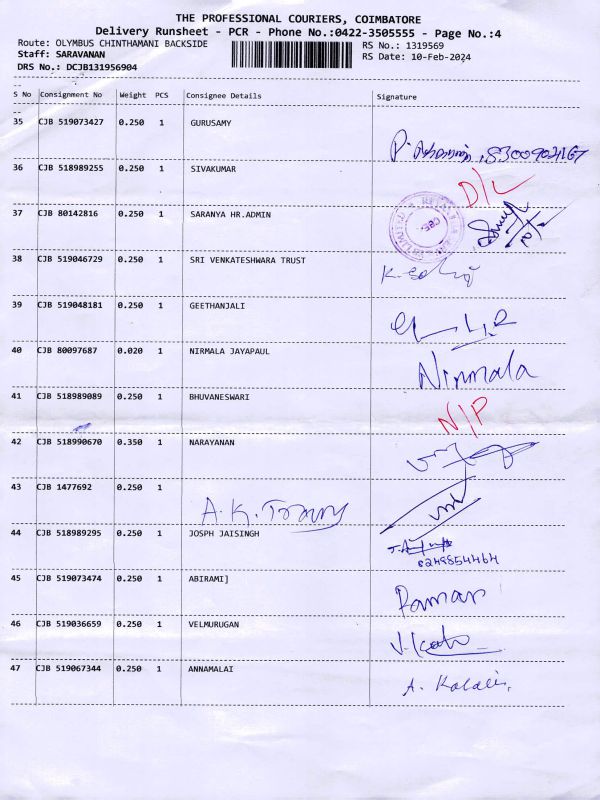 THE PROFESSIONAL COURIERS, COIMBATORE
Delivery Runsheet - PCR - Phone No.:0422-3505555 - Page No.:4
Route: OLYMBUS CHINTHAMANI BACKSIDE
RS No.: 1319569
Staff: SARAVANAN
RS Date: 10-Feb-2024
DRS No.: DCJB131956904
S No Consignment No Weight PCS Consignee Details Signature
35 CJB 519073427 0.250 1 GURUSAMY
36 CJB 518989255 0.250 1 SIVAKUMAR
D/L
37 CJB 80142816 0.250 1 SARANYA HR.ADMIN
38 CJB 519046729 0.250 1 SRI VENKATESHWARA TRUST
39 CJB 519048181 0.250 1 GEETHANJALI
40 CJB 80097687 0.020 1 NIRMALA JAYAPAUL
Nirmala
41 CJB 518989089 0.250 1 BHUVANESWARI
N/P
42 CJB 518990670 0.350 1 NARAYANAN
43 CJB 1477692 0.250 1
44 CJB 518989295 0.250 1 JOSPH JAISINGH
45 CJB 519073474 0.250 1 ABIRAMI]
Raman
46 CJB 519036659 0.250 1 VELMURUGAN
47 CJB 519067344 0.250 1 ANNAMALAI